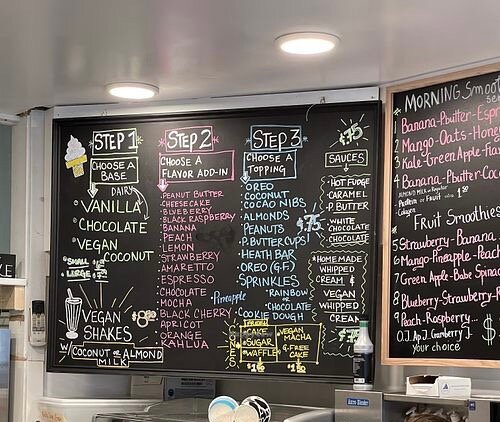 STEP 1
CHOOSE A
BASE
DAIRY
VANILLA
CHOCOLATE
VEGAN
COCONUT
SMALL
LARGE
VEGAN
SHAKES
W/ COCONUT OR ALMOND
MILK
STEP 2
CHOOSE A
FLAVOR ADD-IN
PEANUT BUTTER
CHEESECAKE
BLUEBERRY
BLACK RASPBERRY
BANANA
PEACH
LEMON
STRAWBERRY
AMARETTO
ESPRESSO
CHOCOLATE
MOCHA
BLACK CHERRY
APRICOT
ORANGE
KAHLUA
Pineapple
STEP 3
CHOOSE A
TOPPING
OREO
COCONUT
COCAO NIBS
ALMONDS
PEANUTS
P.BUTTER CUPS
HEATH BAR
OREO (G.F.)
SPRINKLES
"RAINBOW
OR
CHOCOLATE
COOKIE DOUGH
.75
CONES
CAKE
SUGAR
WAFFLE
VEGAN
MACHA
G.FREE
CAKE
.75
SAUCES
HOT FUDGE
CARAMEL
P.BUTTER
WHITE
CHOCOLATE
CHOCOLATE
HOMEMADE
WHIPPED
CREAM &
VEGAN
WHIPPED
CREAM
MORNING Smoot
1 Banana-Pbutter-Espr
2 Mango-Oats-Hone
3 Kale-Green Apple-
4 Banana-Pbutter-Coc
Fruit Smoothies
5 Strawberry-Banana
6 Mango-Pineapple-Peach
7 Green Apple-Babe Spina
8 Blueberry-Strawberry-R
9 Peach-Raspberry...
O.J. Ap.J. Cranberry J.
Your choice
$